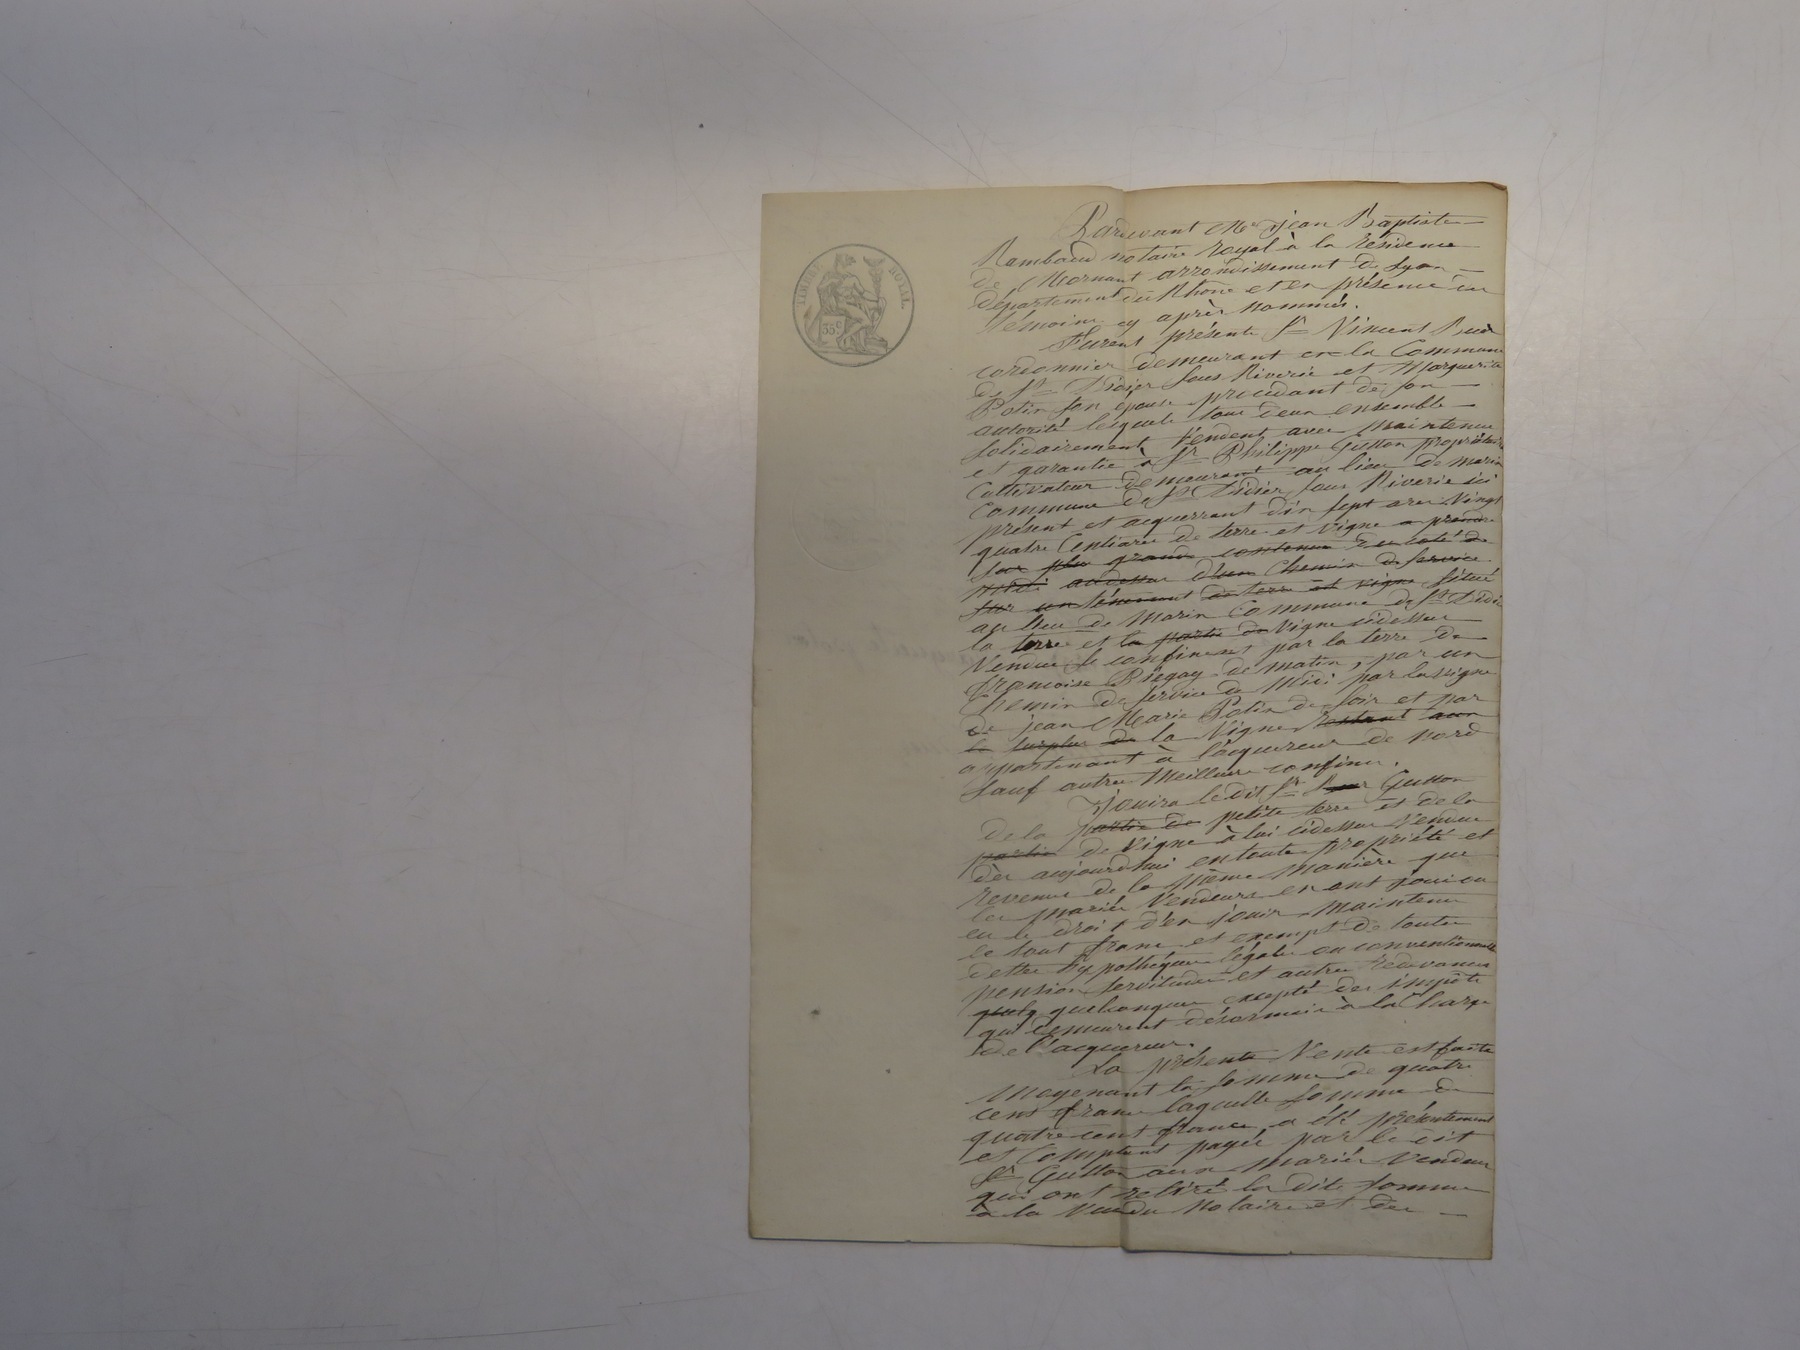 TIMBRE ROYAL
35c
Pardevant Me jean Baptiste
Rambaud notaire royal à la résidence
de Mornant arrondissement de Lyon
département du Rhône et en présence des
témoins cy après nommés.
Furent présents Sr Vincent
cordonnier demeurant en la Commune
de St Didier sous Riverie et Marguerite
Potin son épouse procédant de son
autorité lesquels tous deux ensemble
solidairement vendent avec maintenue
et garantie à Sr Philippe Guston propriétaire
Cultivateur demeurant au lieu de Marin
Commune de St Didier sous Riverie ici
présent et acquerrant dix sept ares vingt
quatre Centiares de terre et vigne a prendre
sur plus grande contenue du coté de
midi audessus d'un Chemin de service
sur un ténement de terre et vigne situé
au lieu de Marin Commune de St Didier
la terre et la partie de vigne cidessus
vendue se confinent par la terre de
françoise de matin, par un
Chemin de service de Midi par la vigne
de jean Marie Potin de soir et par
le surplus de la vigne restant aux
appartenant à l'acquereur de nord
sauf autres meilleurs confins.
Jouira le dit Sr Guston
de la partie de petite terre et de la
partie de vigne à lui cidessus vendue
dès aujourdhui en toute propriété et
revenus de la même manière que
les mariés vendeurs en ont joui ou
eu le droit d'en jouir maintenu
le tout franc et exempt de toutes
dettes hypothéques légales ou conventionnelles
pension servitudes et autres redevances
quelq quelconques excepté des impôts
qui demeurent désormais à la charge
de l'acquereur.
La présente Vente est faite
Moyenant la somme de quatre
cent francs laquelle somme de
quatre cent francs a été présentement
et Comptant payée par le dit
Sr Guston aux mariés vendeurs
qui ont retiré la dite somme
à la vue du Notaire et des